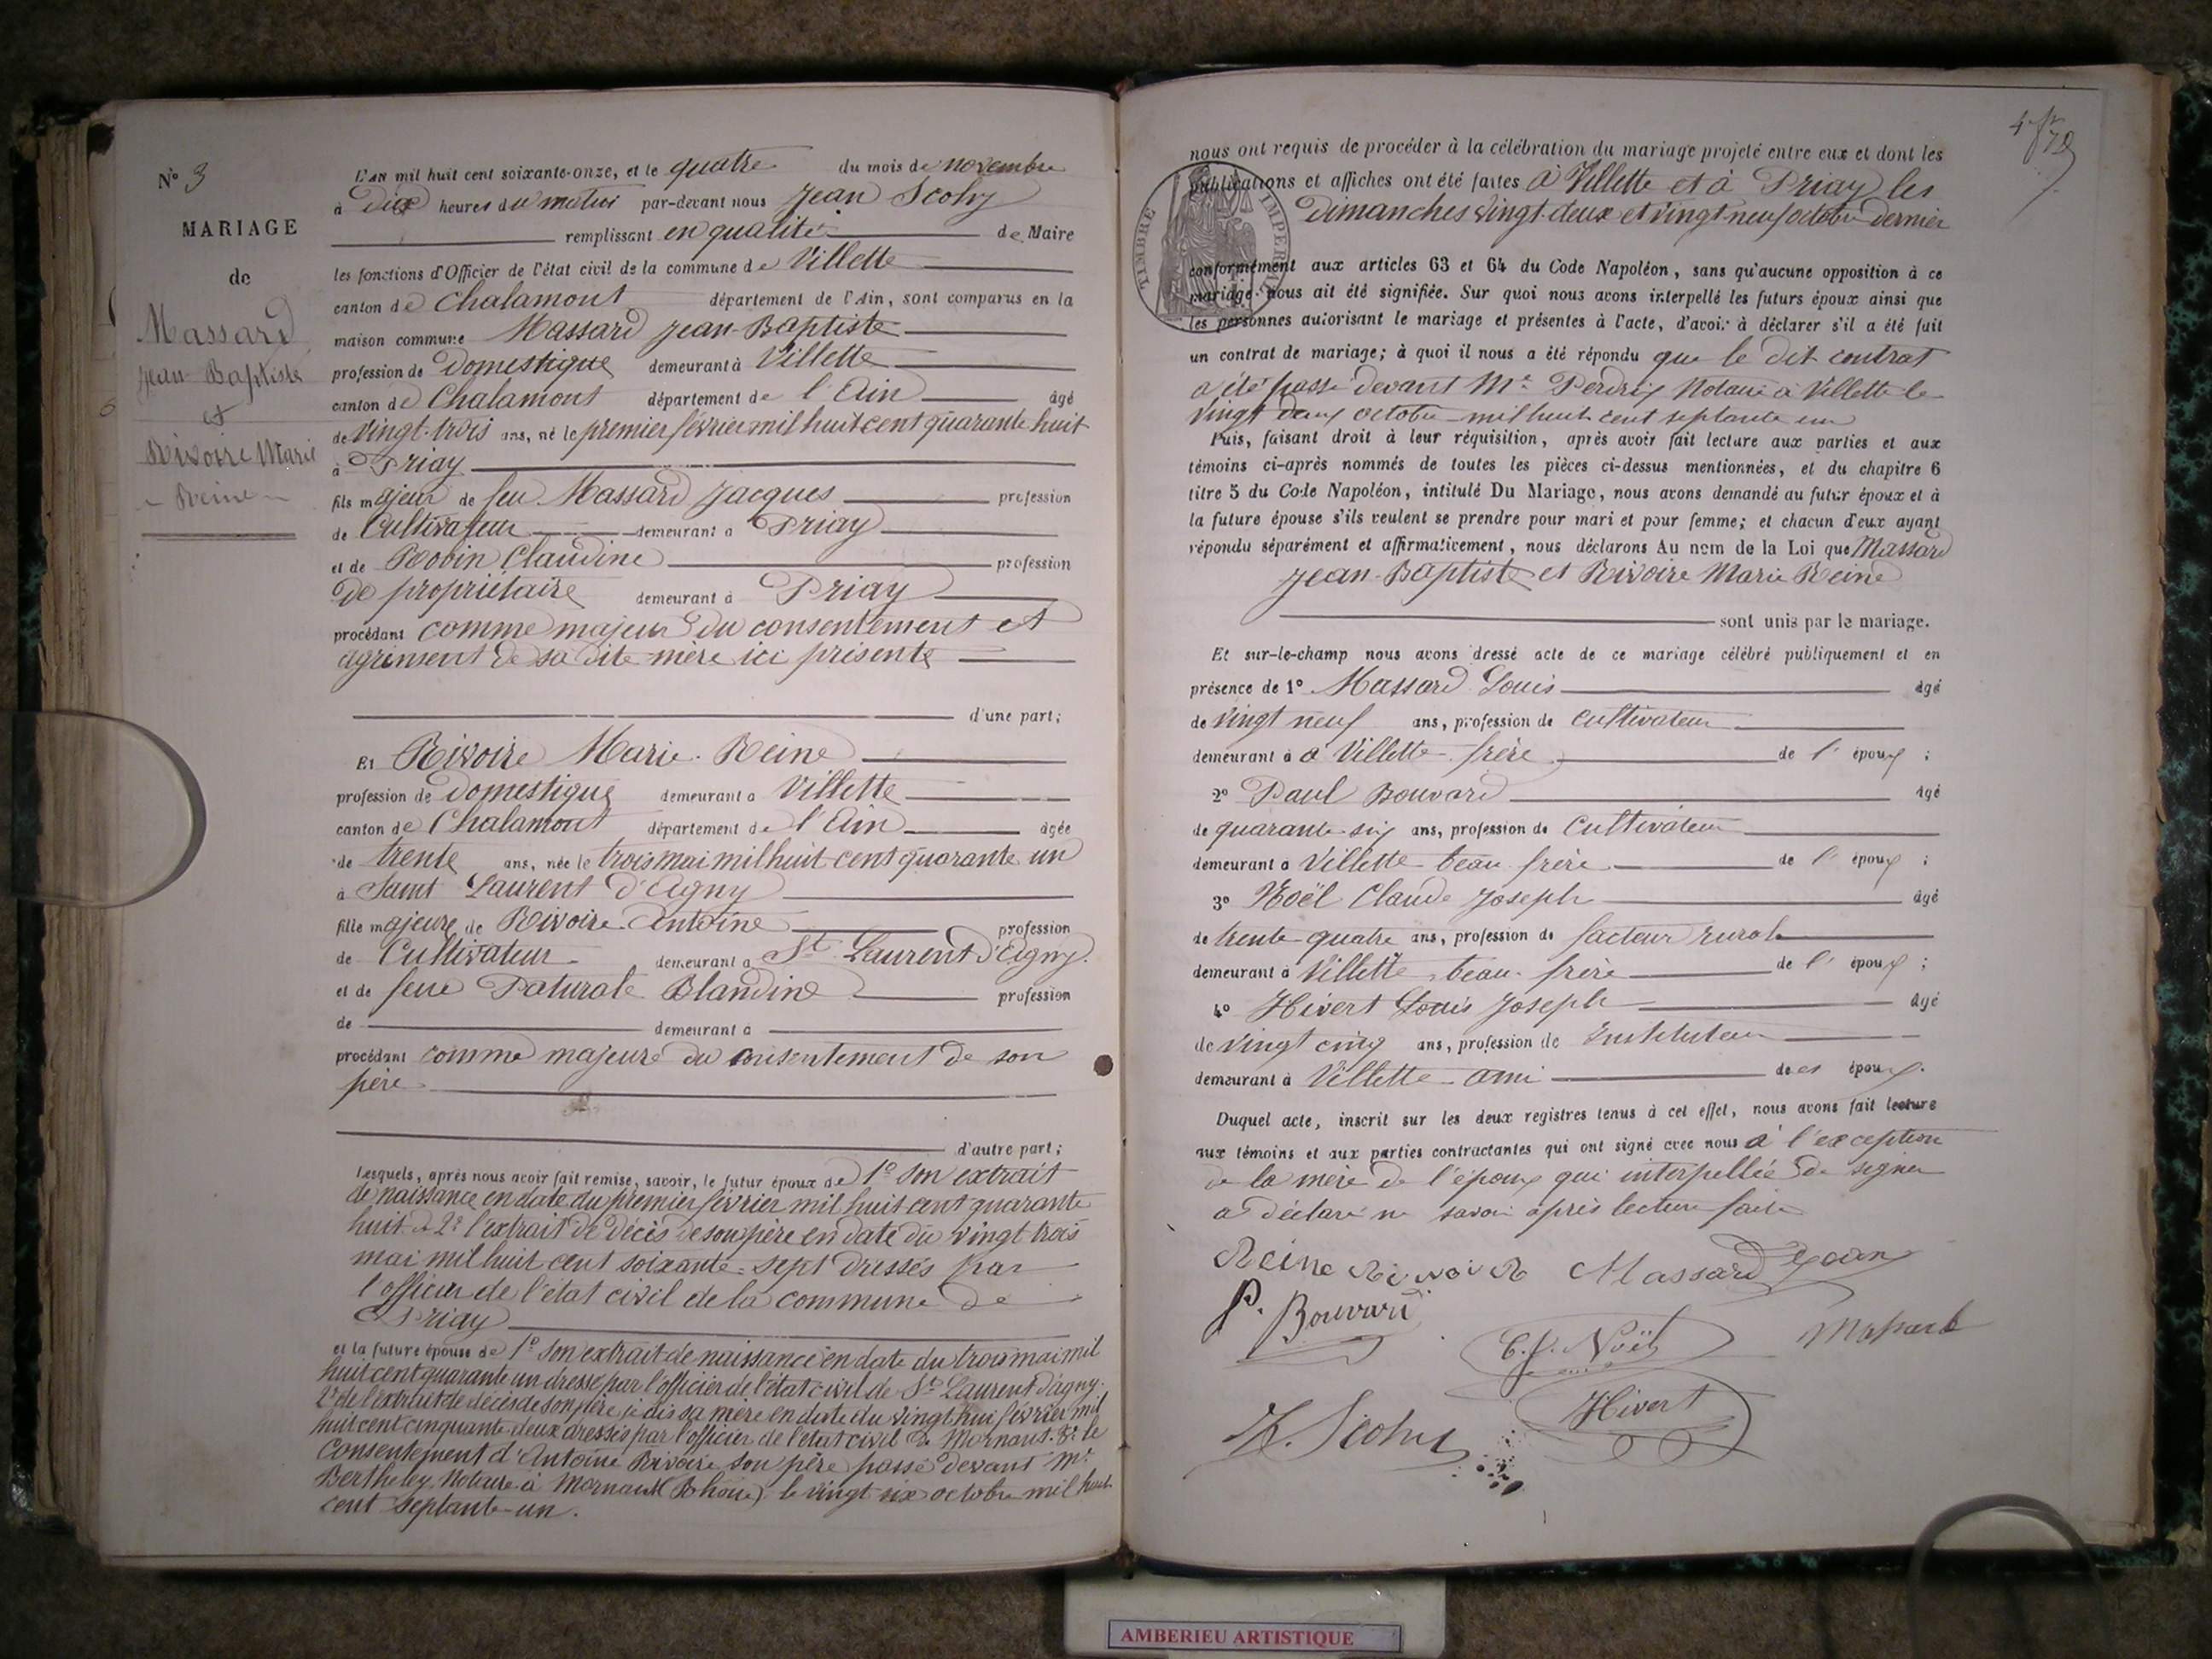 N° 3
MARIAGE
de
Massard
Jean-Baptiste
et
Rivoire Marie
- Reine -
L'AN mil huit cent soixante-onze, et le quatre du mois de novembre
à Dix heures du matin par-devant nous Jean Scohy
remplissant en qualité de Maire
les fonctions d'Officier de l'état civil de la commune de Villette
canton de Chalamont département de l'Ain, sont comparus en la
maison commune Massard Jean-Baptiste
profession de Domestique demeurant à Villette
canton de Chalamont département de l'Ain âgé
de vingt-trois ans, né le premier février mil huit cent quarante huit
à Priay
fils majeur de feu Massard Jacques profession
de Cultivateur demeurant à Priay
et de Robin Claudine profession
De propriétaire demeurant à Priay
procédant comme majeur du consentement et
agrément de sa dite mère ici présente
d'une part;
Et Rivoire Marie-Reine
profession de Domestique demeurant à Villette
canton de Chalamont département de l'Ain âgée
de trente ans, née le trois mai mil huit cent quarante un
à Saint Laurent d'Agny
fille majeure de Rivoire Antoine profession
de Cultivateur demeurant à St Laurent d'Agny.
et de feue Paturale Blandine profession
de demeurant à
procédant comme majeure du consentement de son
père
d'autre part;
Lesquels, après nous avoir fait remise, savoir, le futur époux de 1° son extrait
de naissance en date du premier février mil huit cent quarante
huit et 2° l'extrait de décès de son père en date du vingt trois
mai mil huit cent soixante-sept dressés par
l'officier de l'état civil de la commune de
Priay
et la future épouse de 1° son extrait de naissance en date du trois mai mil
huit cent quarante un dressé par l'officier de l'état civil de St Laurent d'agny.
2° de l'extrait de décès de son père, je dis sa mère en date du vingt huit février mil
huit cent cinquante-deux dressés par l'officier de l'état civil de Mornant. 3° le
Consentement d'Antoine Rivoire son père passé devant Me
Bertheley Notaire à Mornant (Rhône) le vingt six octobre mil huit
cent septante-un.
nous ont requis de procéder à la célébration du mariage projeté entre eux et dont les
publications et affiches ont été faites à Villette et à Priay les
dimanches vingt-deux et vingt-neuf octobre dernier
TIMBRE IMPERIAL
conformément aux articles 63 et 64 du Code Napoléon, sans qu'aucune opposition à ce
mariage nous ait été signifiée. Sur quoi nous avons interpellé les futurs époux ainsi que
les personnes autorisant le mariage et présentes à l'acte, d'avoir à déclarer s'il a été fait
un contrat de mariage; à quoi il nous a été répondu que le dit contrat
a été passé devant Me Perdrix Notaire à Villette le
vingt deux octobre mil huit cent septante un
Puis, faisant droit à leur réquisition, après avoir fait lecture aux parties et aux
témoins ci-après nommés de toutes les pièces ci-dessus mentionnées, et du chapitre 6
titre 5 du Code Napoléon, intitulé Du Mariage, nous avons demandé au futur époux et à
la future épouse s'ils veulent se prendre pour mari et pour femme; et chacun d'eux ayant
répondu séparément et affirmativement, nous déclarons Au nom de la Loi que Massard
Jean-Baptiste et Rivoire Marie Reine
sont unis par le mariage.
Et sur-le-champ nous avons dressé acte de ce mariage célébré publiquement et en
présence de 1° Massard Louis âgé
de vingt neuf ans, profession de cultivateur
demeurant à à Villette-frère de l'époux;
2° Paul Bouvard âgé
de quarante-six ans, profession de Cultivateur
demeurant à Villette-beau-frère de l'époux;
3° Noël Claude Joseph âgé
de trente-quatre ans, profession de facteur rural
demeurant à Villette, beau-frère de l'époux;
4° Hivert Louis Joseph âgé
de vingt cinq ans, profession de Instituteur
demeurant à Villette-ami des époux.
Duquel acte, inscrit sur les deux registres tenus à cet effet, nous avons fait lecture
aux témoins et aux parties contractantes qui ont signé avec nous à l'exception
de la mère de l'époux qui interpellée de signer
a déclaré ne savoir après lecture faite
Reine Rivoire Massard Jean
P. Bouvard
C. J. Noël Massard
J. Scohy Hivert
AMBERIEU ARTISTIQUE